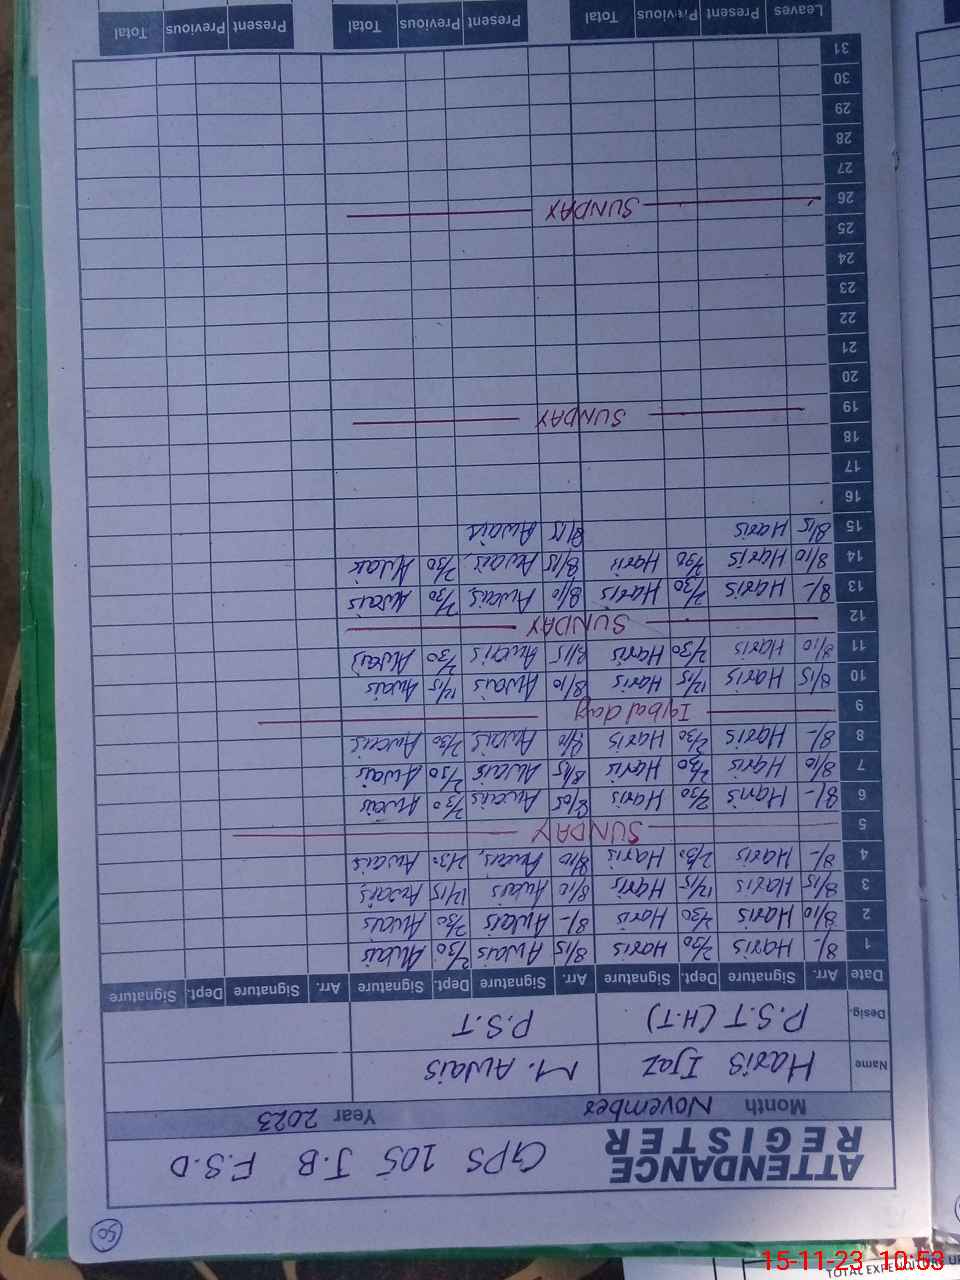 50
ATTENDANCE REGISTER GPS 105 J.B F.S.D
Month November Year 2023
Name Haris Ijaz M. Awais
Desig. P.S.T (H.T) P.S.T
Date Arr. Signature Dept. Signature Arr. Signature Dept. Signature Arr. Signature Dept. Signature
1 8/- Haris 2/30 Haris 8/15 Awais 2/30 Awais
2 8/10 Haris 2/30 Haris 8/- Awais 2/30 Awais
3 8/15 Haris 12/15 Haris 8/10 Awais 12/15 Awais
4 8/- Haris 2/30 Haris 8/10 Awais 2/30 Awais
5 SUNDAY
6 8/- Haris 2/30 Haris 8/05 Awais 2/30 Awais
7 8/10 Haris 2/30 Haris 8/15 Awais 2/30 Awais
8 8/- Haris 2/30 Haris 8/10 Awais 2/30 Awais
9 Iqbal day
10 8/15 Haris 12/15 Haris 8/10 Awais 12/15 Awais
11 8/10 Haris 2/30 Haris 8/15 Awais 2/30 Awais
12 SUNDAY
13 8/- Haris 2/30 Haris 8/10 Awais 2/30 Awais
14 8/10 Haris 2/30 Haris 8/15 Awais 2/30 Awais
15 8/15 Haris 8/15 Awais
16
17
18
19 SUNDAY
20
21
22
23
24
25
26 SUNDAY
27
28
29
30
31
Leaves Present Previous Total Present Previous Total Present Previous Total
15-11-23 10:53
TOTAL EXPENDITURE